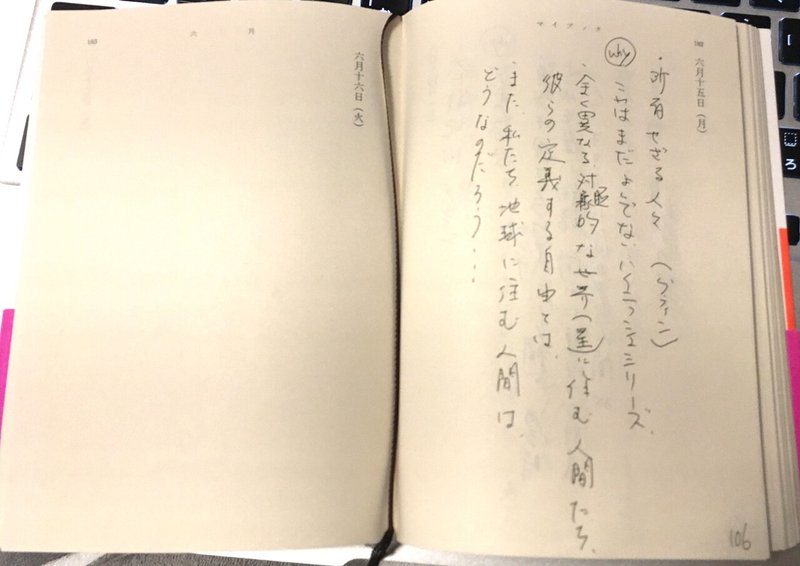 マイブック
六月十五日（月）
・所有せざる人々 （グウィン）
why
これはまだよんでないハイニッシュシリーズ、
・全く異なる、対蹠的な世界（星）に住む人間たち、
彼らの定義する自由とは、
・また、私たち、地球に住む人間は、
どうなのだろう・・・
106
六月
六月十六日（火）